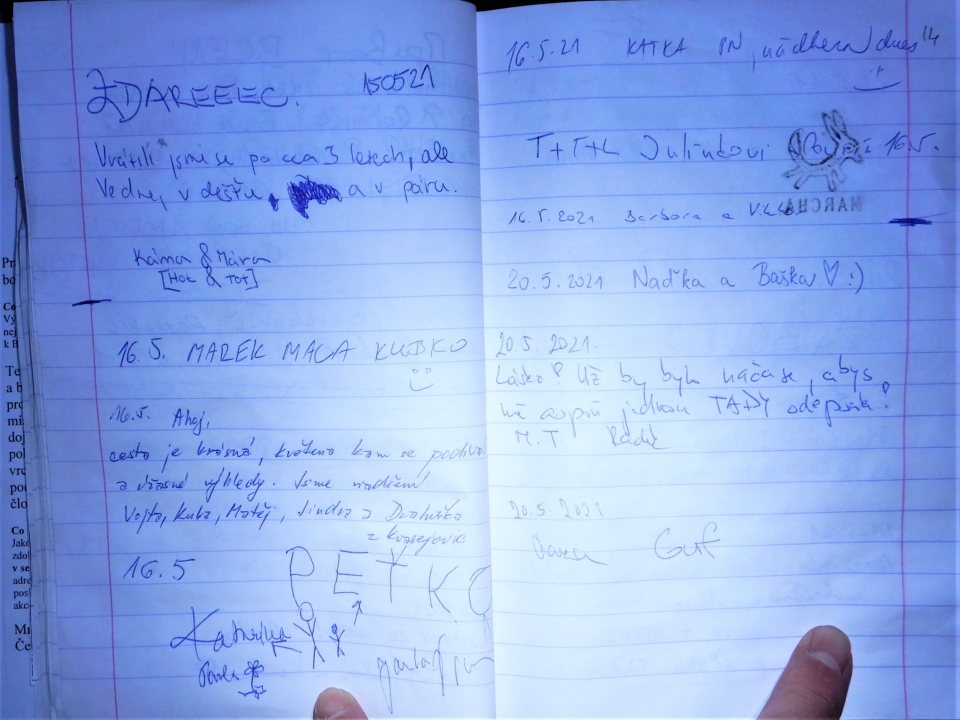 ZDAREEEC. 150521
Vrátili jsme se po cca 3 letech, ale
Ve dne, v dešťu, a v páru.
Káma & Mára
[HOT & TOT]
16.5. MAREK MACA KUBKO
16.5. Ahoj,
cesta je krásná, kvetena kam se podíva
a úžasné výhledy. Jsme nadšení
Vojta, Kuba, Matěj, Jindra a
z
16.5 PETKO
Katurka
Pavla
16.5.21 KATKA PN, nádhera dnes
T+T+L 16.5.
MARCHA
16.5.2021 Barbora a
20.5.2021 Naďka a Baška ♡ :)
20.5.2021.
Lásko! Už by bylo načase, abys
mě jednou TADY
M.T Radk
20.5.2021
Guf